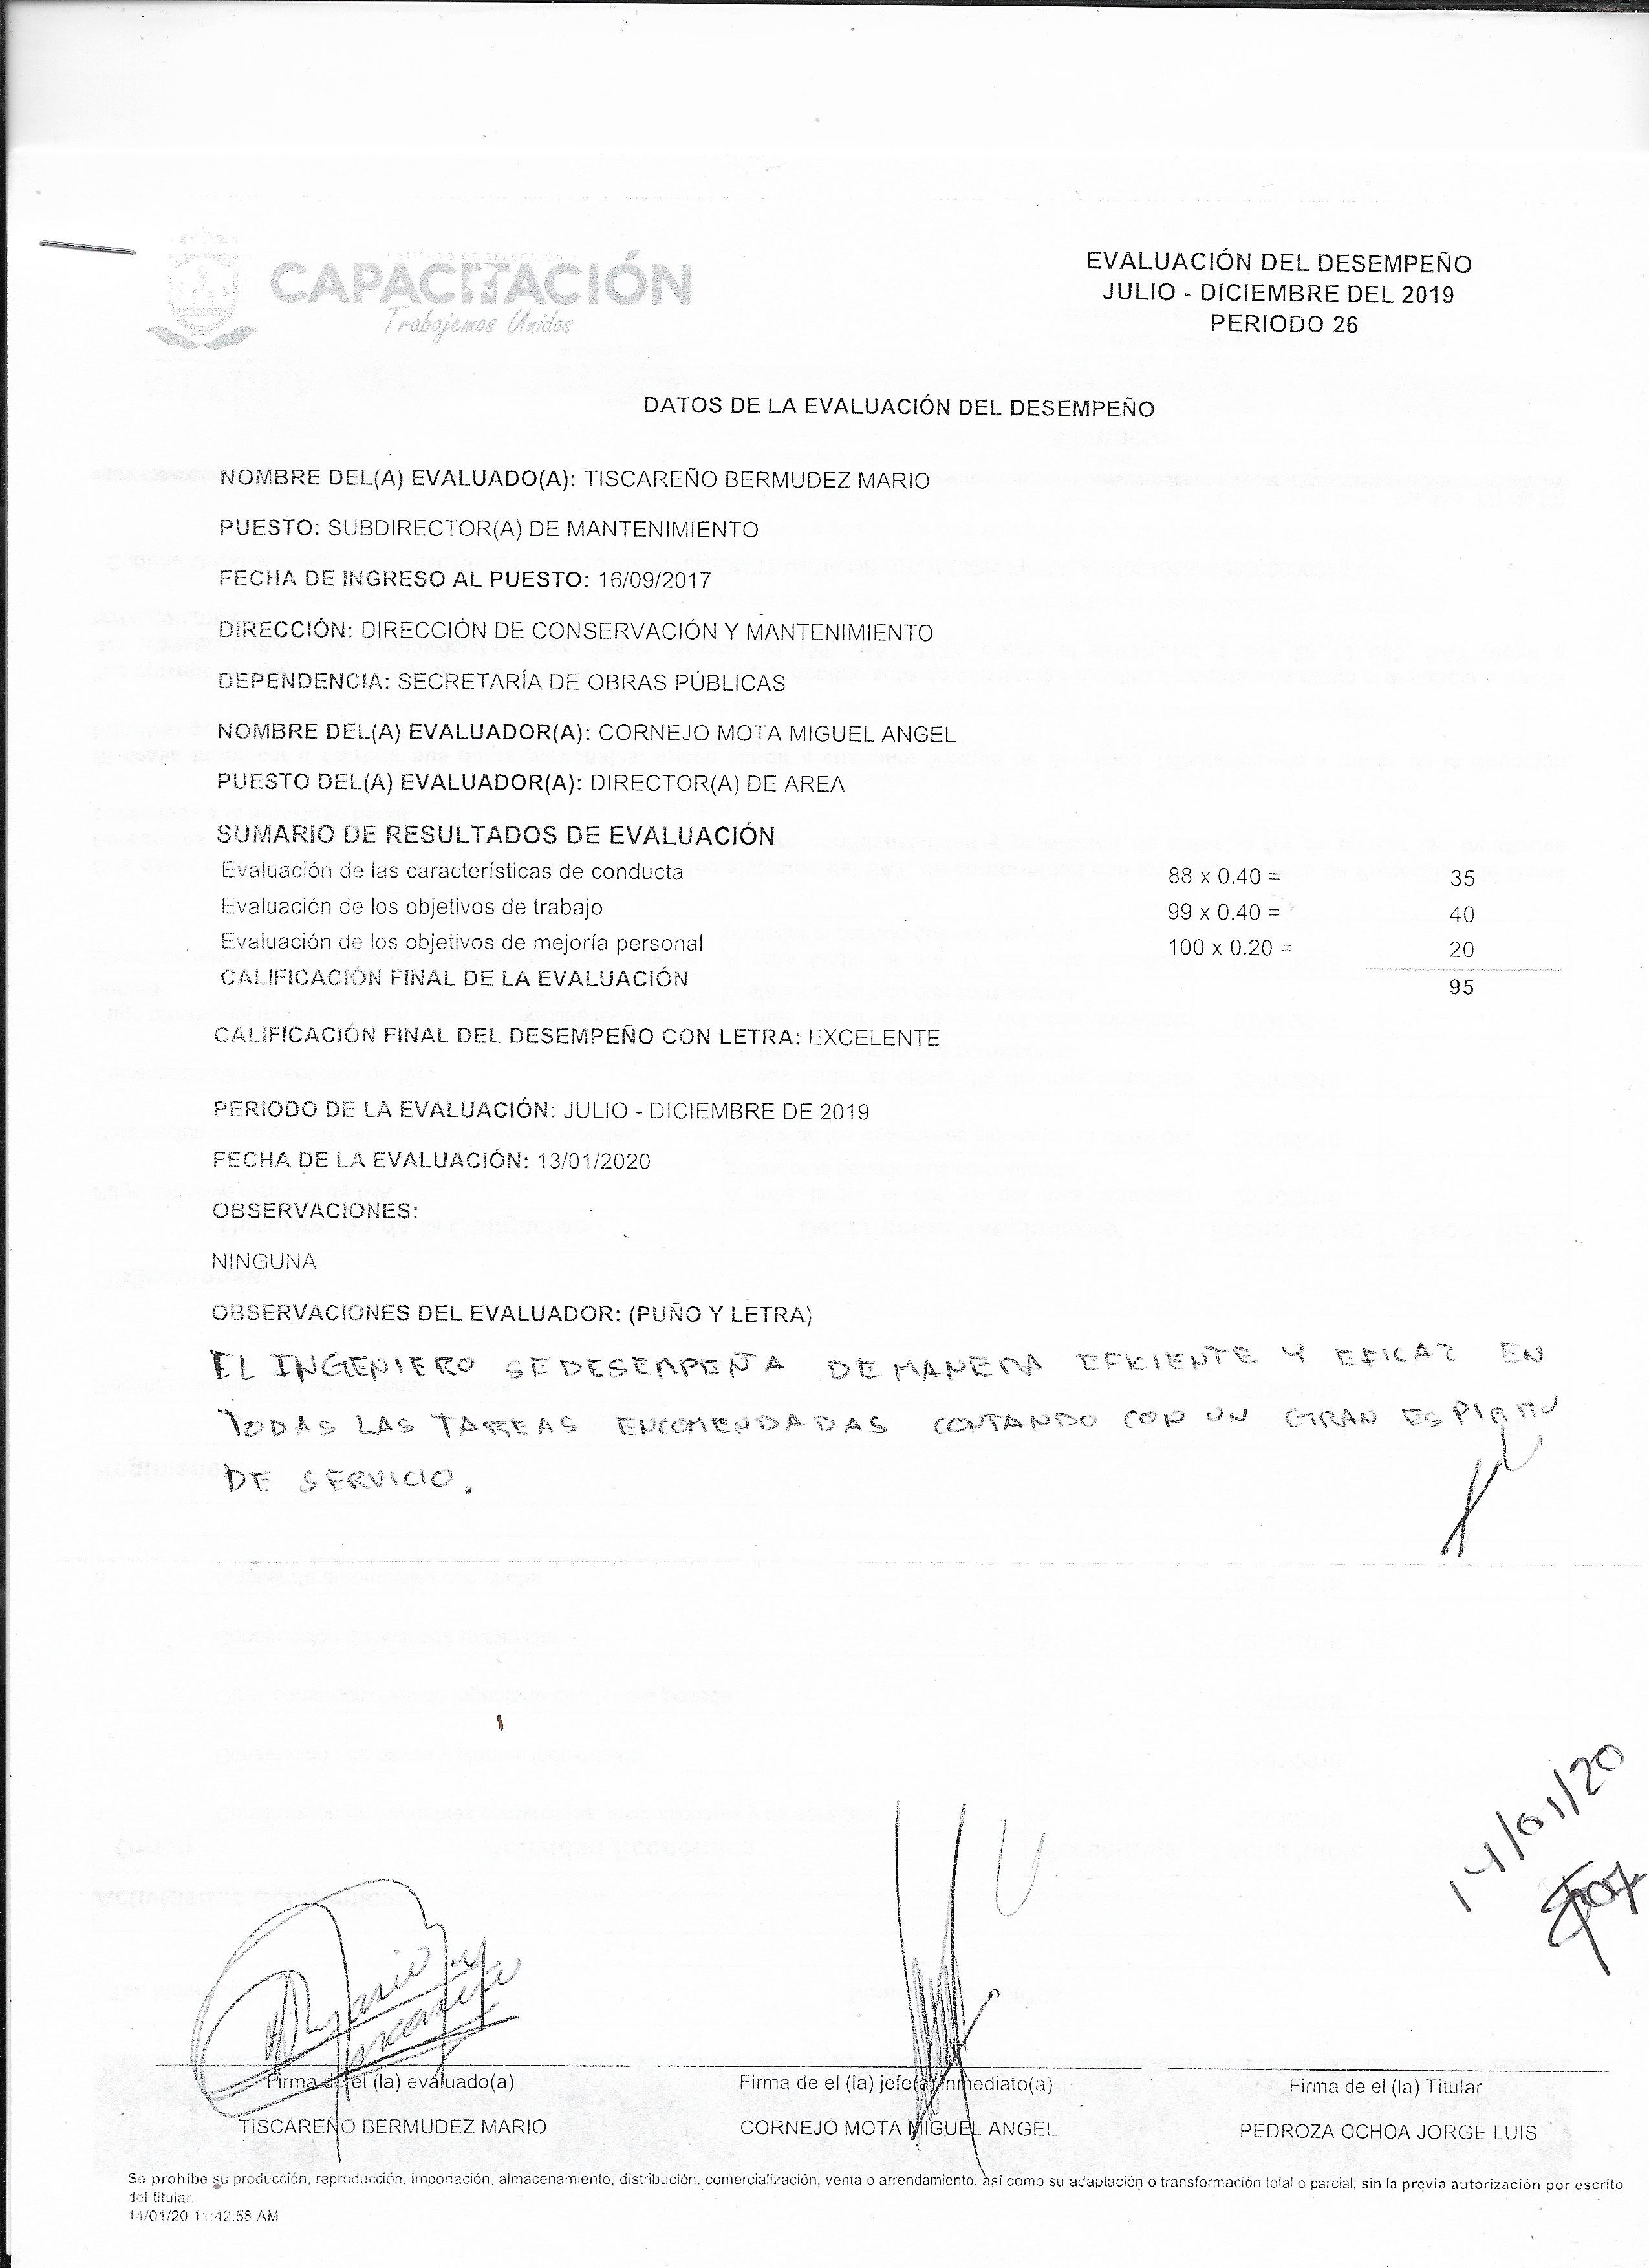 CAPACITACIÓN
Trabajemos Unidos
EVALUACIÓN DEL DESEMPEÑO
JULIO - DICIEMBRE DEL 2019
PERIODO 26
DATOS DE LA EVALUACIÓN DEL DESEMPEÑO
NOMBRE DEL(A) EVALUADO(A): TISCAREÑO BERMUDEZ MARIO
PUESTO: SUBDIRECTOR(A) DE MANTENIMIENTO
FECHA DE INGRESO AL PUESTO: 16/09/2017
DIRECCIÓN: DIRECCIÓN DE CONSERVACIÓN Y MANTENIMIENTO
DEPENDENCIA: SECRETARÍA DE OBRAS PÚBLICAS
NOMBRE DEL(A) EVALUADOR(A): CORNEJO MOTA MIGUEL ANGEL
PUESTO DEL(A) EVALUADOR(A): DIRECTOR(A) DE AREA
SUMARIO DE RESULTADOS DE EVALUACIÓN
Evaluación de las características de conducta 88 x 0.40 = 35
Evaluación de los objetivos de trabajo 99 x 0.40 = 40
Evaluación de los objetivos de mejoría personal 100 x 0.20 = 20
CALIFICACIÓN FINAL DE LA EVALUACIÓN 95
CALIFICACIÓN FINAL DEL DESEMPEÑO CON LETRA: EXCELENTE
PERIODO DE LA EVALUACIÓN: JULIO - DICIEMBRE DE 2019
FECHA DE LA EVALUACIÓN: 13/01/2020
OBSERVACIONES:
NINGUNA
OBSERVACIONES DEL EVALUADOR: (PUÑO Y LETRA)
EL INGENIERO SE DESEMPEÑA DE MANERA EFICIENTE Y EFICAZ EN
TODAS LAS TAREAS ENCOMENDADAS CONTANDO CON UN GRAN ESPIRITU
DE SERVICIO.
14/01/20
Mario Tiscareño
Firma de el (la) evaluado(a) Firma de el (la) jefe(a) inmediato(a) Firma de el (la) Titular
TISCAREÑO BERMUDEZ MARIO CORNEJO MOTA MIGUEL ANGEL PEDROZA OCHOA JORGE LUIS
Se prohibe su producción, reproducción, importación, almacenamiento, distribución, comercialización, venta o arrendamiento, así como su adaptación o transformación total o parcial, sin la previa autorización por escrito
del titular.
14/01/20 11:42:58 AM